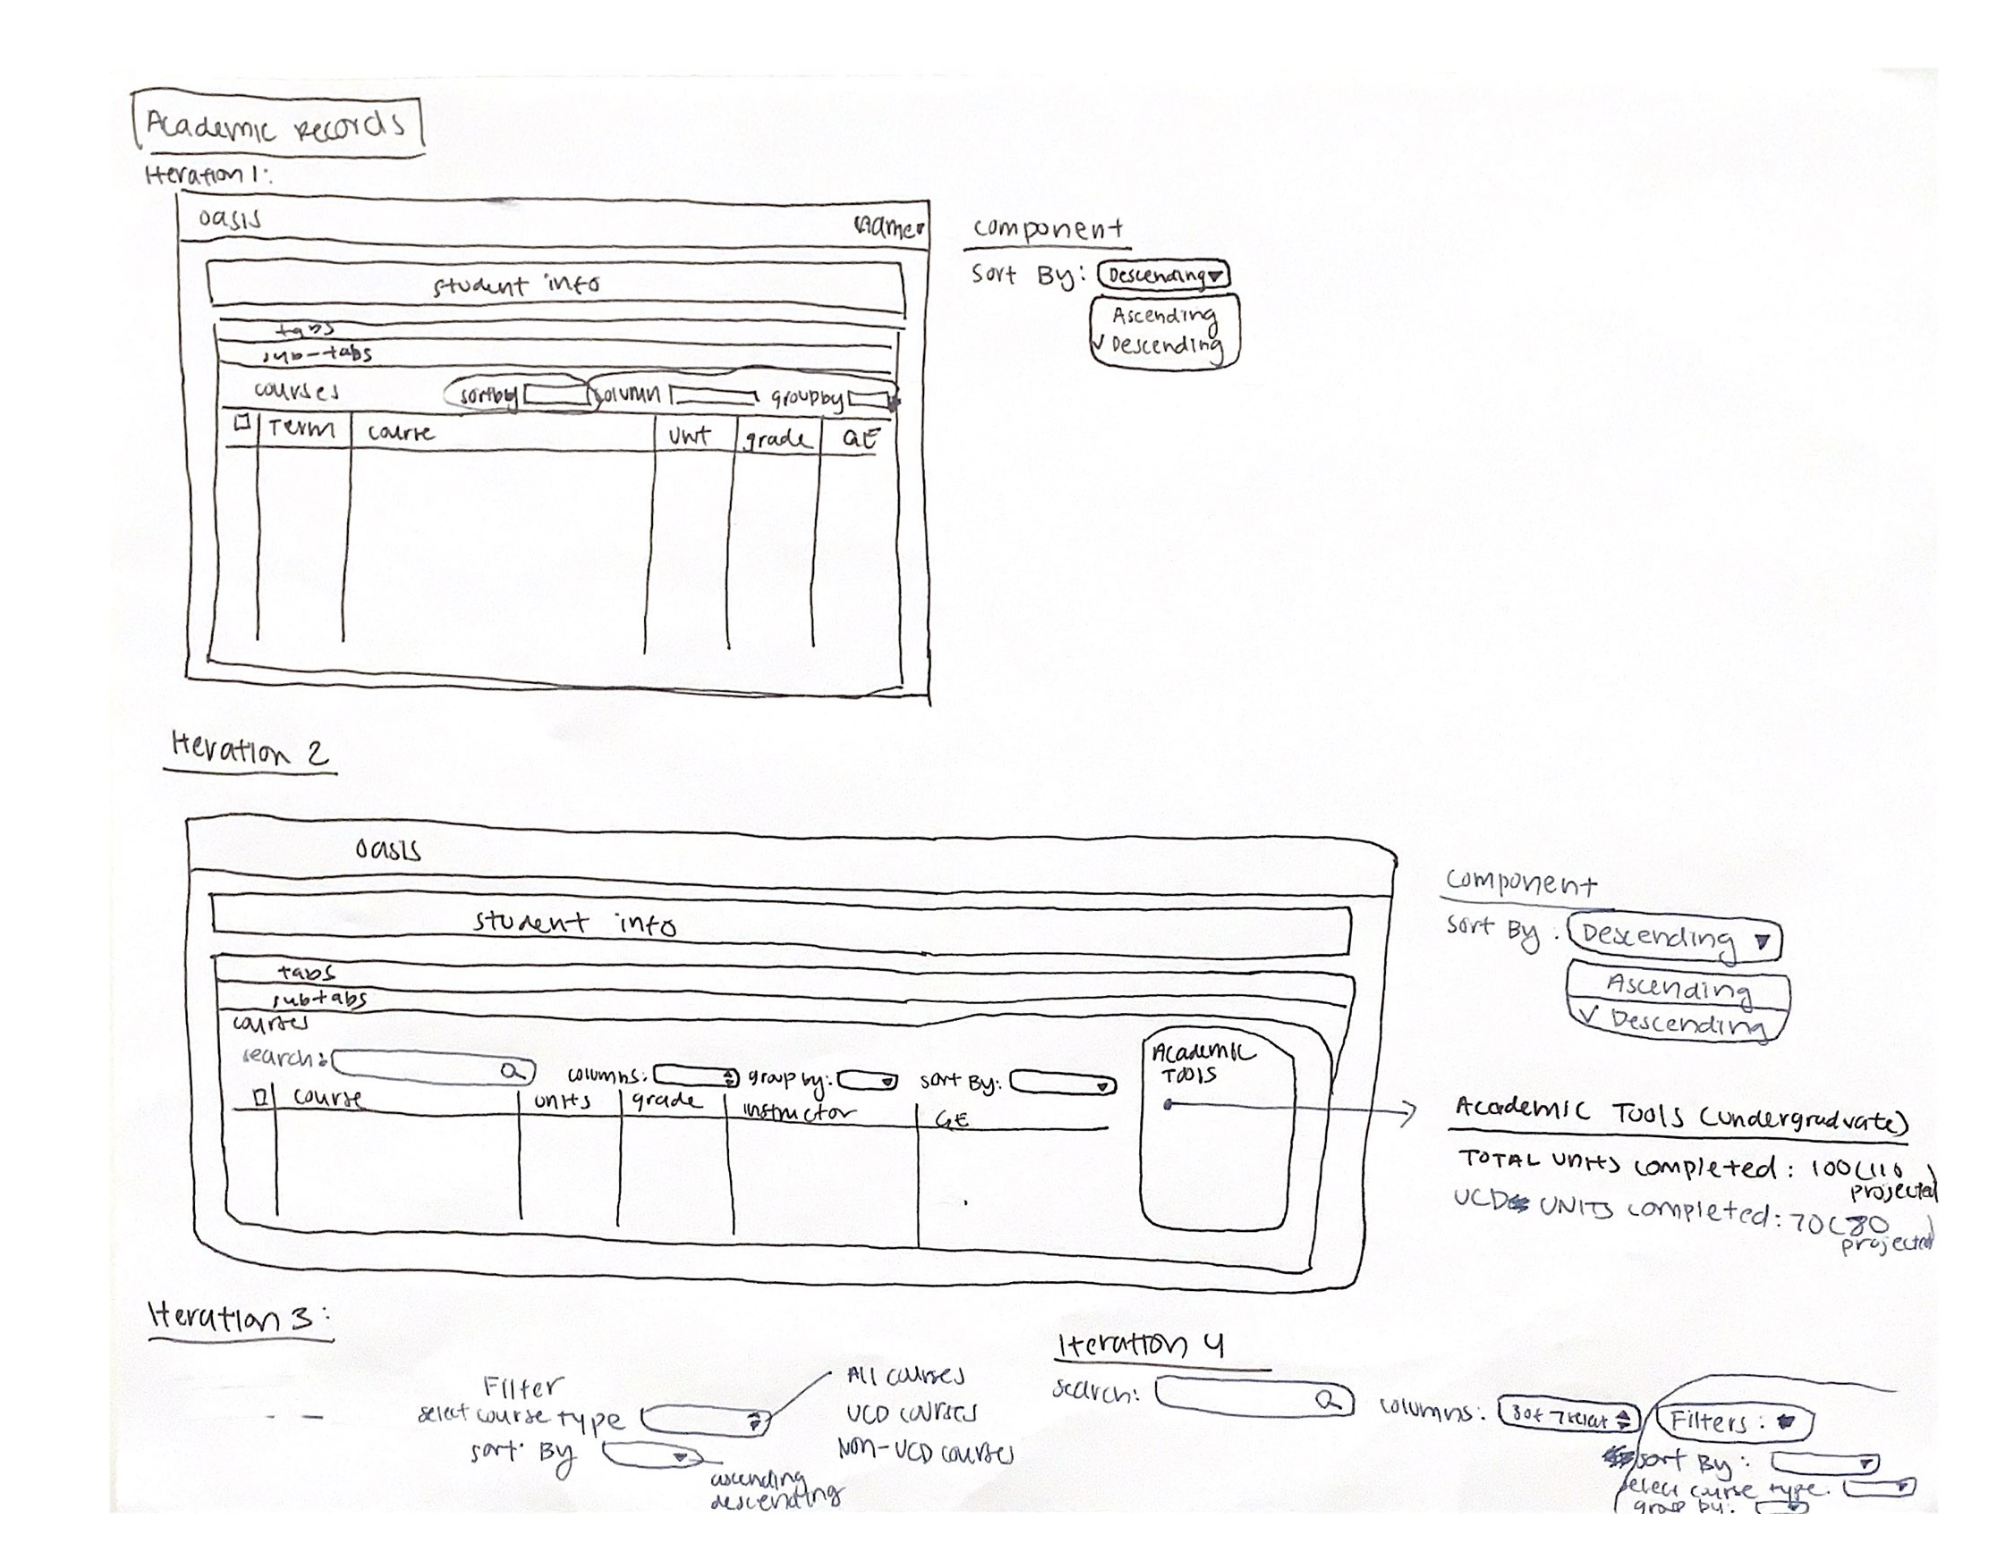 Academic Records
Iteration 1:
oasis
Name
student info
tabs
sub-tabs
courses sortby column groupby
Term course unit grade GE
component
Sort By: Descending
Ascending
✓ Descending
Iteration 2
oasis
student info
tabs
subtabs
courses
search: columns: group by: sort By:
course units grade instructor GE
Academic
Tools
component
Sort By: Descending
Ascending
✓ Descending
Academic Tools (undergraduate)
Total units completed: 100(110
projected)
UCD units completed: 70(80
projected)
Iteration 3:
Filter
select course type
sort By
All courses
UCD courses
Non-UCD courses
ascending
descending
Iteration 4
search: columns: 3 of 7 Filters:
sort By:
select course type:
group by: